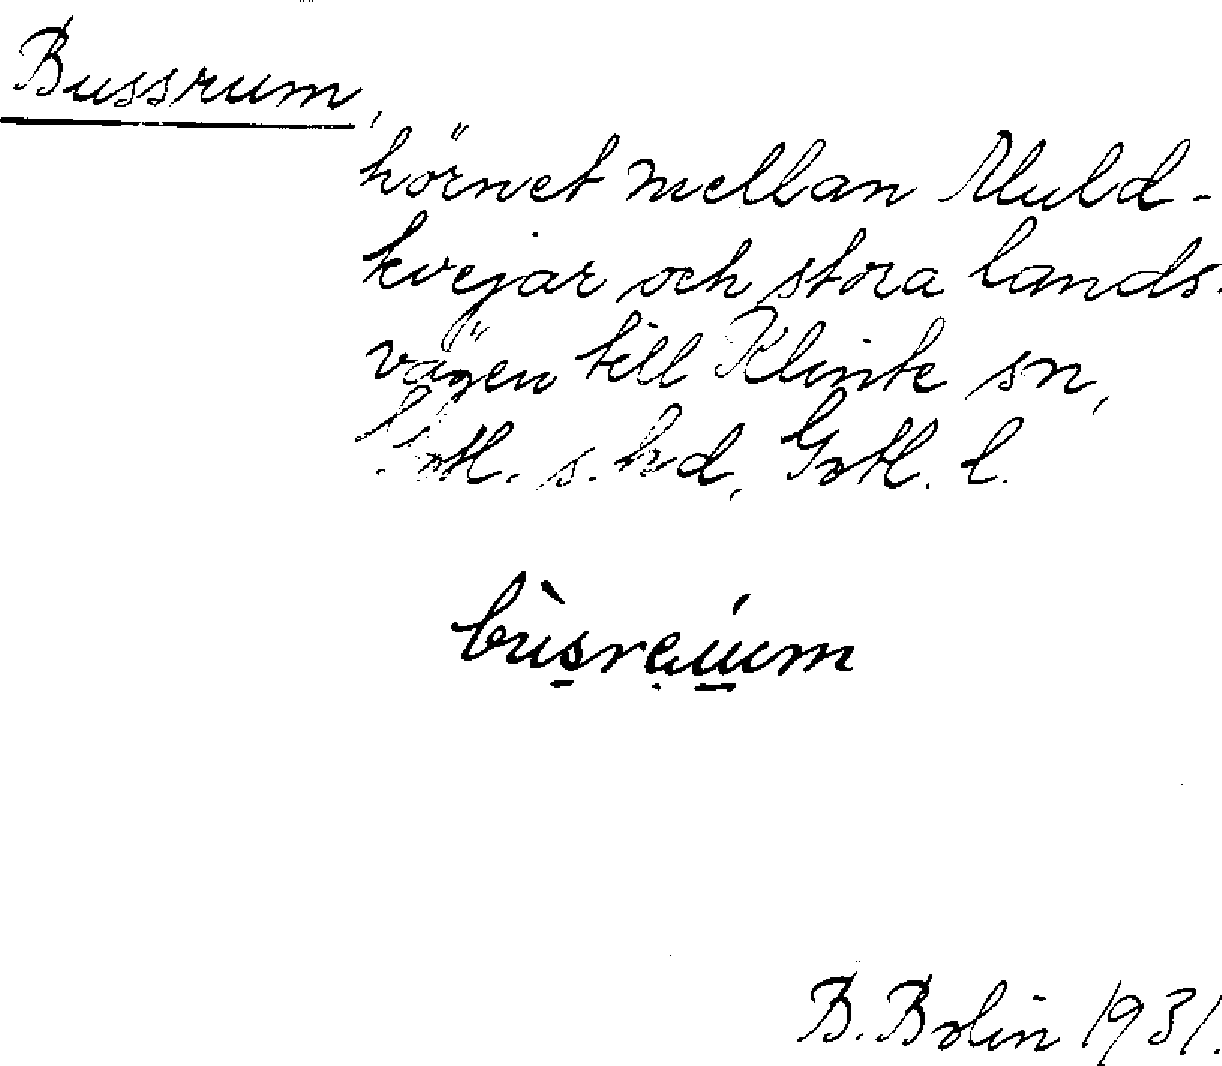 Bussrum,
hörnet mellan Muld-
kvejar och stora lands-
vägen till Klinte sn,
Gotl. s. hd, Gotl. l.
bùsraúum
B. Bolin 1931.